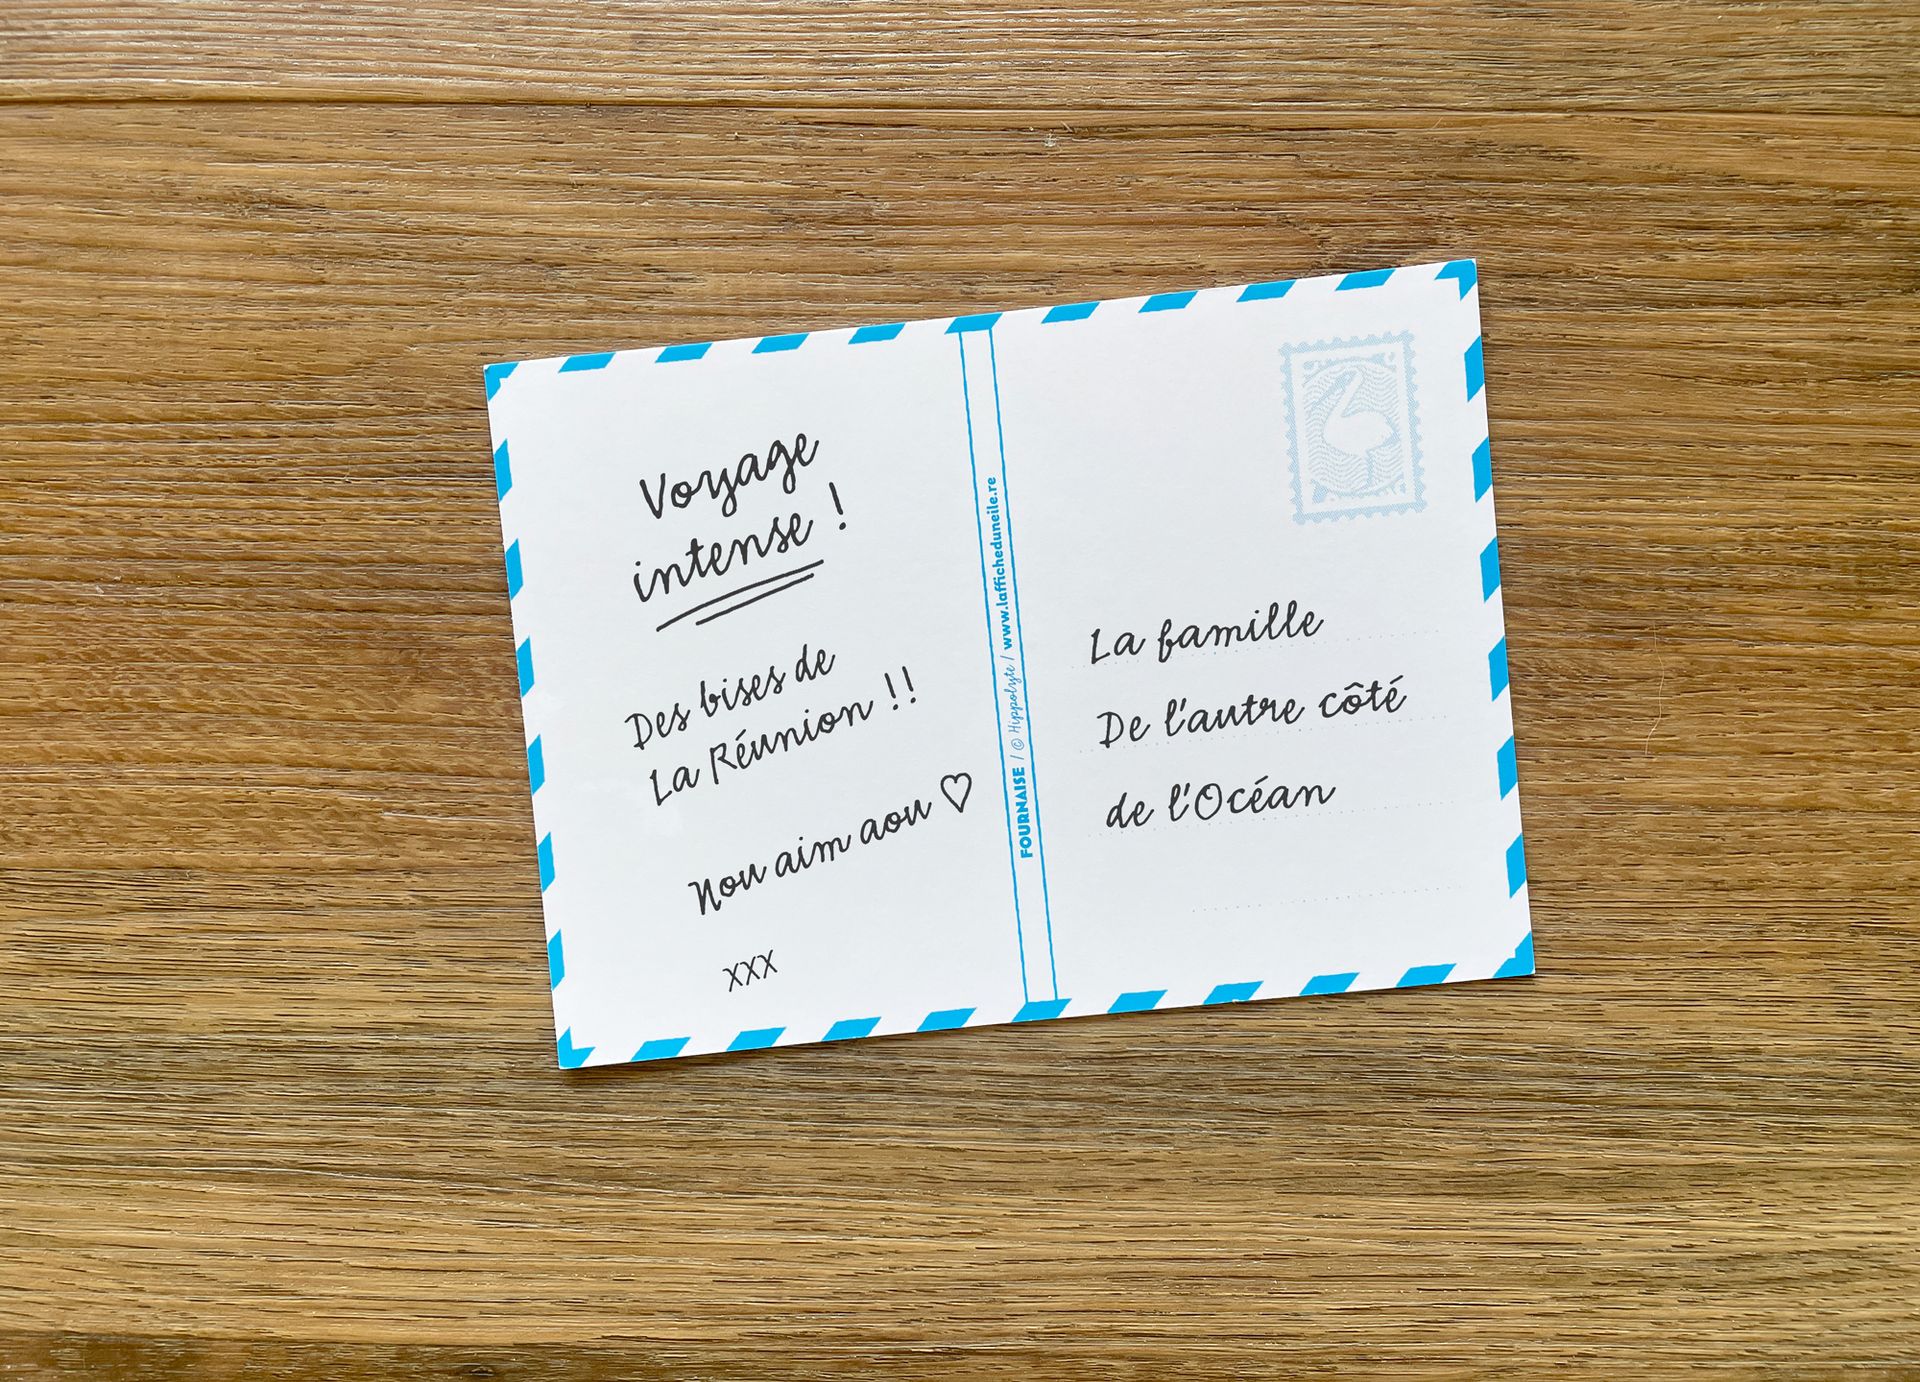 Voyage
intense !
Des bises de
La Réunion !!
Nou aim aou ♡
xxx
FOURNAISE / © Hippolyte / www.lafficheduneile.re
La famille
De l'autre côté
de l'Océan